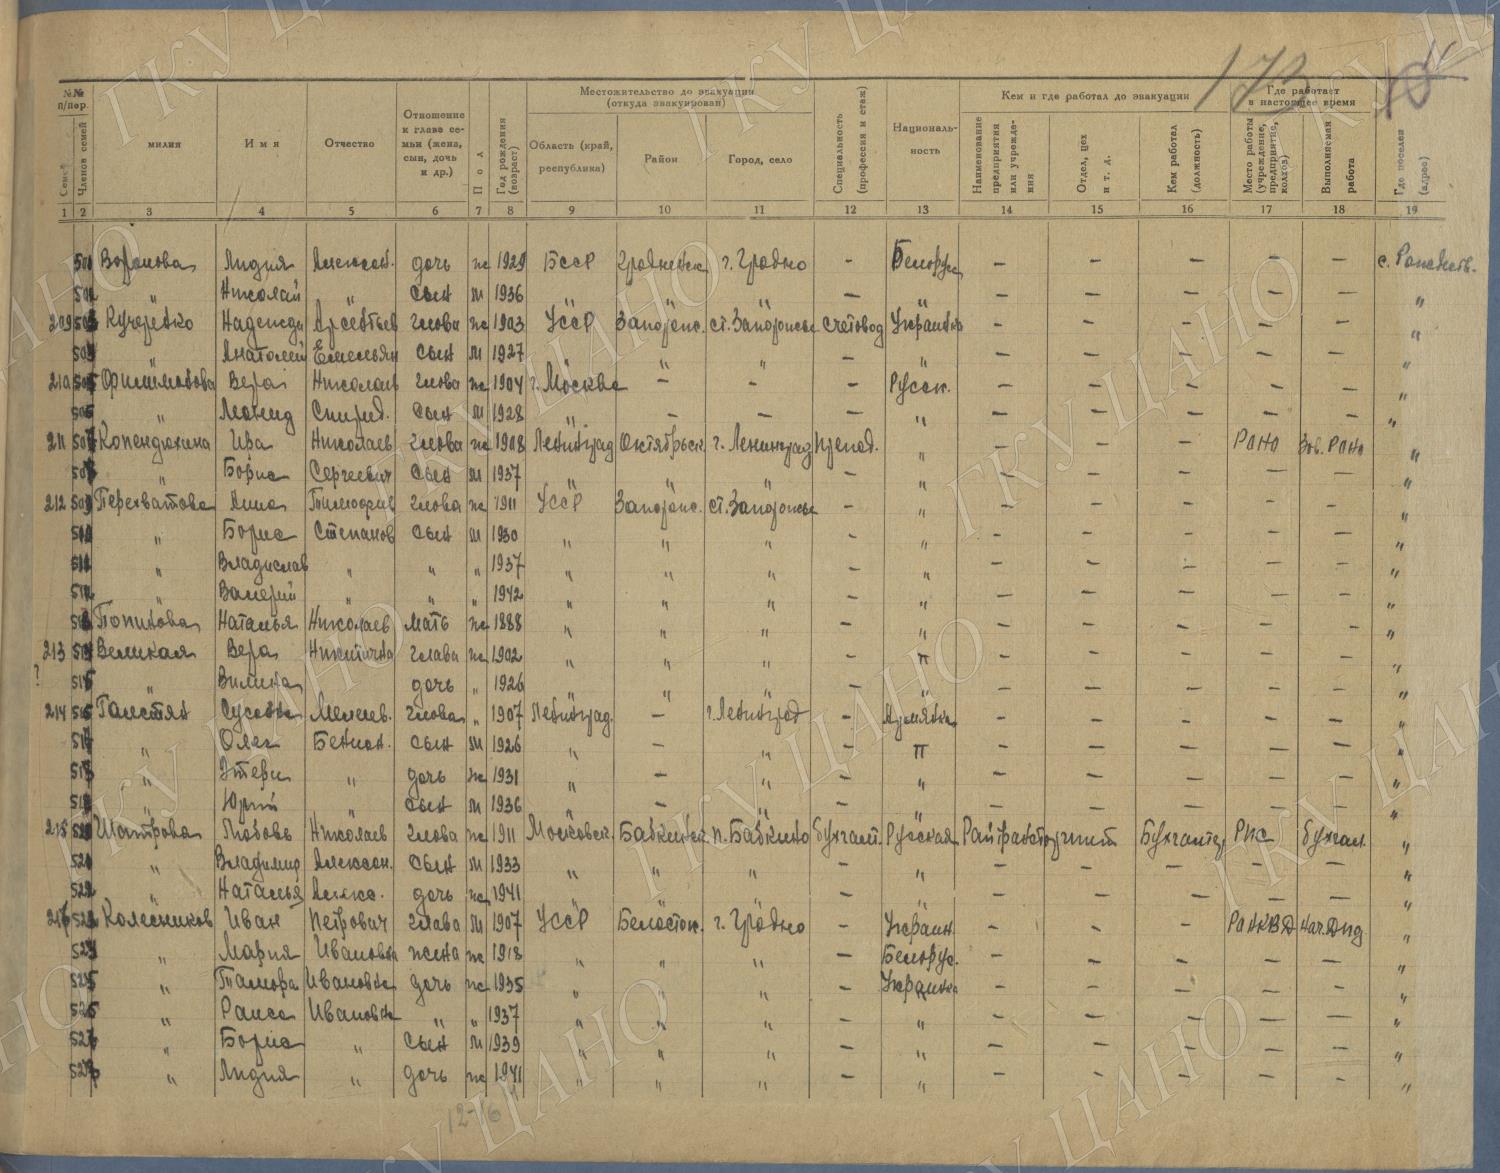 173
№№ п/пор.
Семей
Членов семей
милия
Имя
Отчество
Отношение к главе семьи (жена, сын, дочь и др.)
Пол
Год рождения (возраст)
Местожительство до эвакуации (откуда эвакуирован)
Область (край, республика)
Район
Город, село
Специальность (профессия и стаж)
Национальность
Кем и где работал до эвакуации
Наименование предприятия или учреждения
Отдел, цех и т. д.
Кем работал (должность)
Где работает в настоящее время
Место работы (учреждение, предприятие, колхоз)
Выполняемая работа
Где поселен (адрес)
1 2 3 4 5 6 7 8 9 10 11 12 13 14 15 16 17 18 19
Воронова Лидия Алексан. дочь ж 1929 БССР Гродненск. г. Гродно - Белорус. - - - - - с.
502 " Николай " сын м 1936 " " " - " - - - - - "
209 503 Надежда Арсентьев глова ж 1903 УССР Запорож. ст. Запорожье счетовод Украинка - - - - - "
504 " Анатолий Емельян сын м 1927 " " " - " - - - - - "
210 505 Вера Николаев глова ж 1904 г. Москва - - Русск. - - - - - "
506 " Леонид Спирид. сын м 1928 " - - - " - - - - - "
211 507 Ива Николаев глова ж 1908 Ленинград Октябрьск. г. Ленинград препод. " - - - РОНО Зав. РОНО "
508 " Борис Сергеевич сын м 1937 " " " - " - - - - - "
212 509 Перехватова Анна Тимофеев глова ж 1911 УССР Запорож. ст. Запорожье - " - - - - - "
510 " Борис Степанов сын м 1930 " " " - " - - - - - "
511 " Владислав " " " 1937 " " " - " - - - - - "
512 " Валерий " " " 1942 " " " - " - - - - - "
513 Наталья Николаев мать ж 1888 " " " - " - - - - - "
213 514 Великая Вера Никитична глава ж 1902 " " " - п - - - - - "
? 515 " дочь " 1926 " " " - " - - - - - "
214 516 Галстян глова " 1907 Ленинград. - г. Ленинград - Армянка - - - - - "
517 " Олег сын м 1926 " - " - п - - - - - "
518 " Этери " дочь ж 1931 " - " - " - - - - - "
519 " Юрий " сын м 1936 " - " - " - - - - - "
215 520 Шатрова Любовь Николаев глова ж 1911 Московск. п. бухгалт. Русская Бухгалтер РИС бухгал. "
521 " Владимир Алексан. сын м 1933 " " " - " - - - - - "
522 " Наталья дочь ж 1941 " " " - " - - - - - "
216 523 Колесников Иван Петрович глава м 1907 УССР Белосток. г. Гродно - Украин. - - - РОНКВД "
524 " Мария Ивановна жена ж 1918 " " " - Белорус. - - - - - "
525 " Тамара Ивановна дочь ж 1935 " " " - Украинка - - - - - "
526 " Раиса Ивановна " " 1937 " " " - " - - - - - "
527 " Борис " сын м 1939 " " " - " - - - - - "
528 " Лидия " дочь ж 1941 " " " - " - - - - - "
12-16
ГКУ ЦАНО